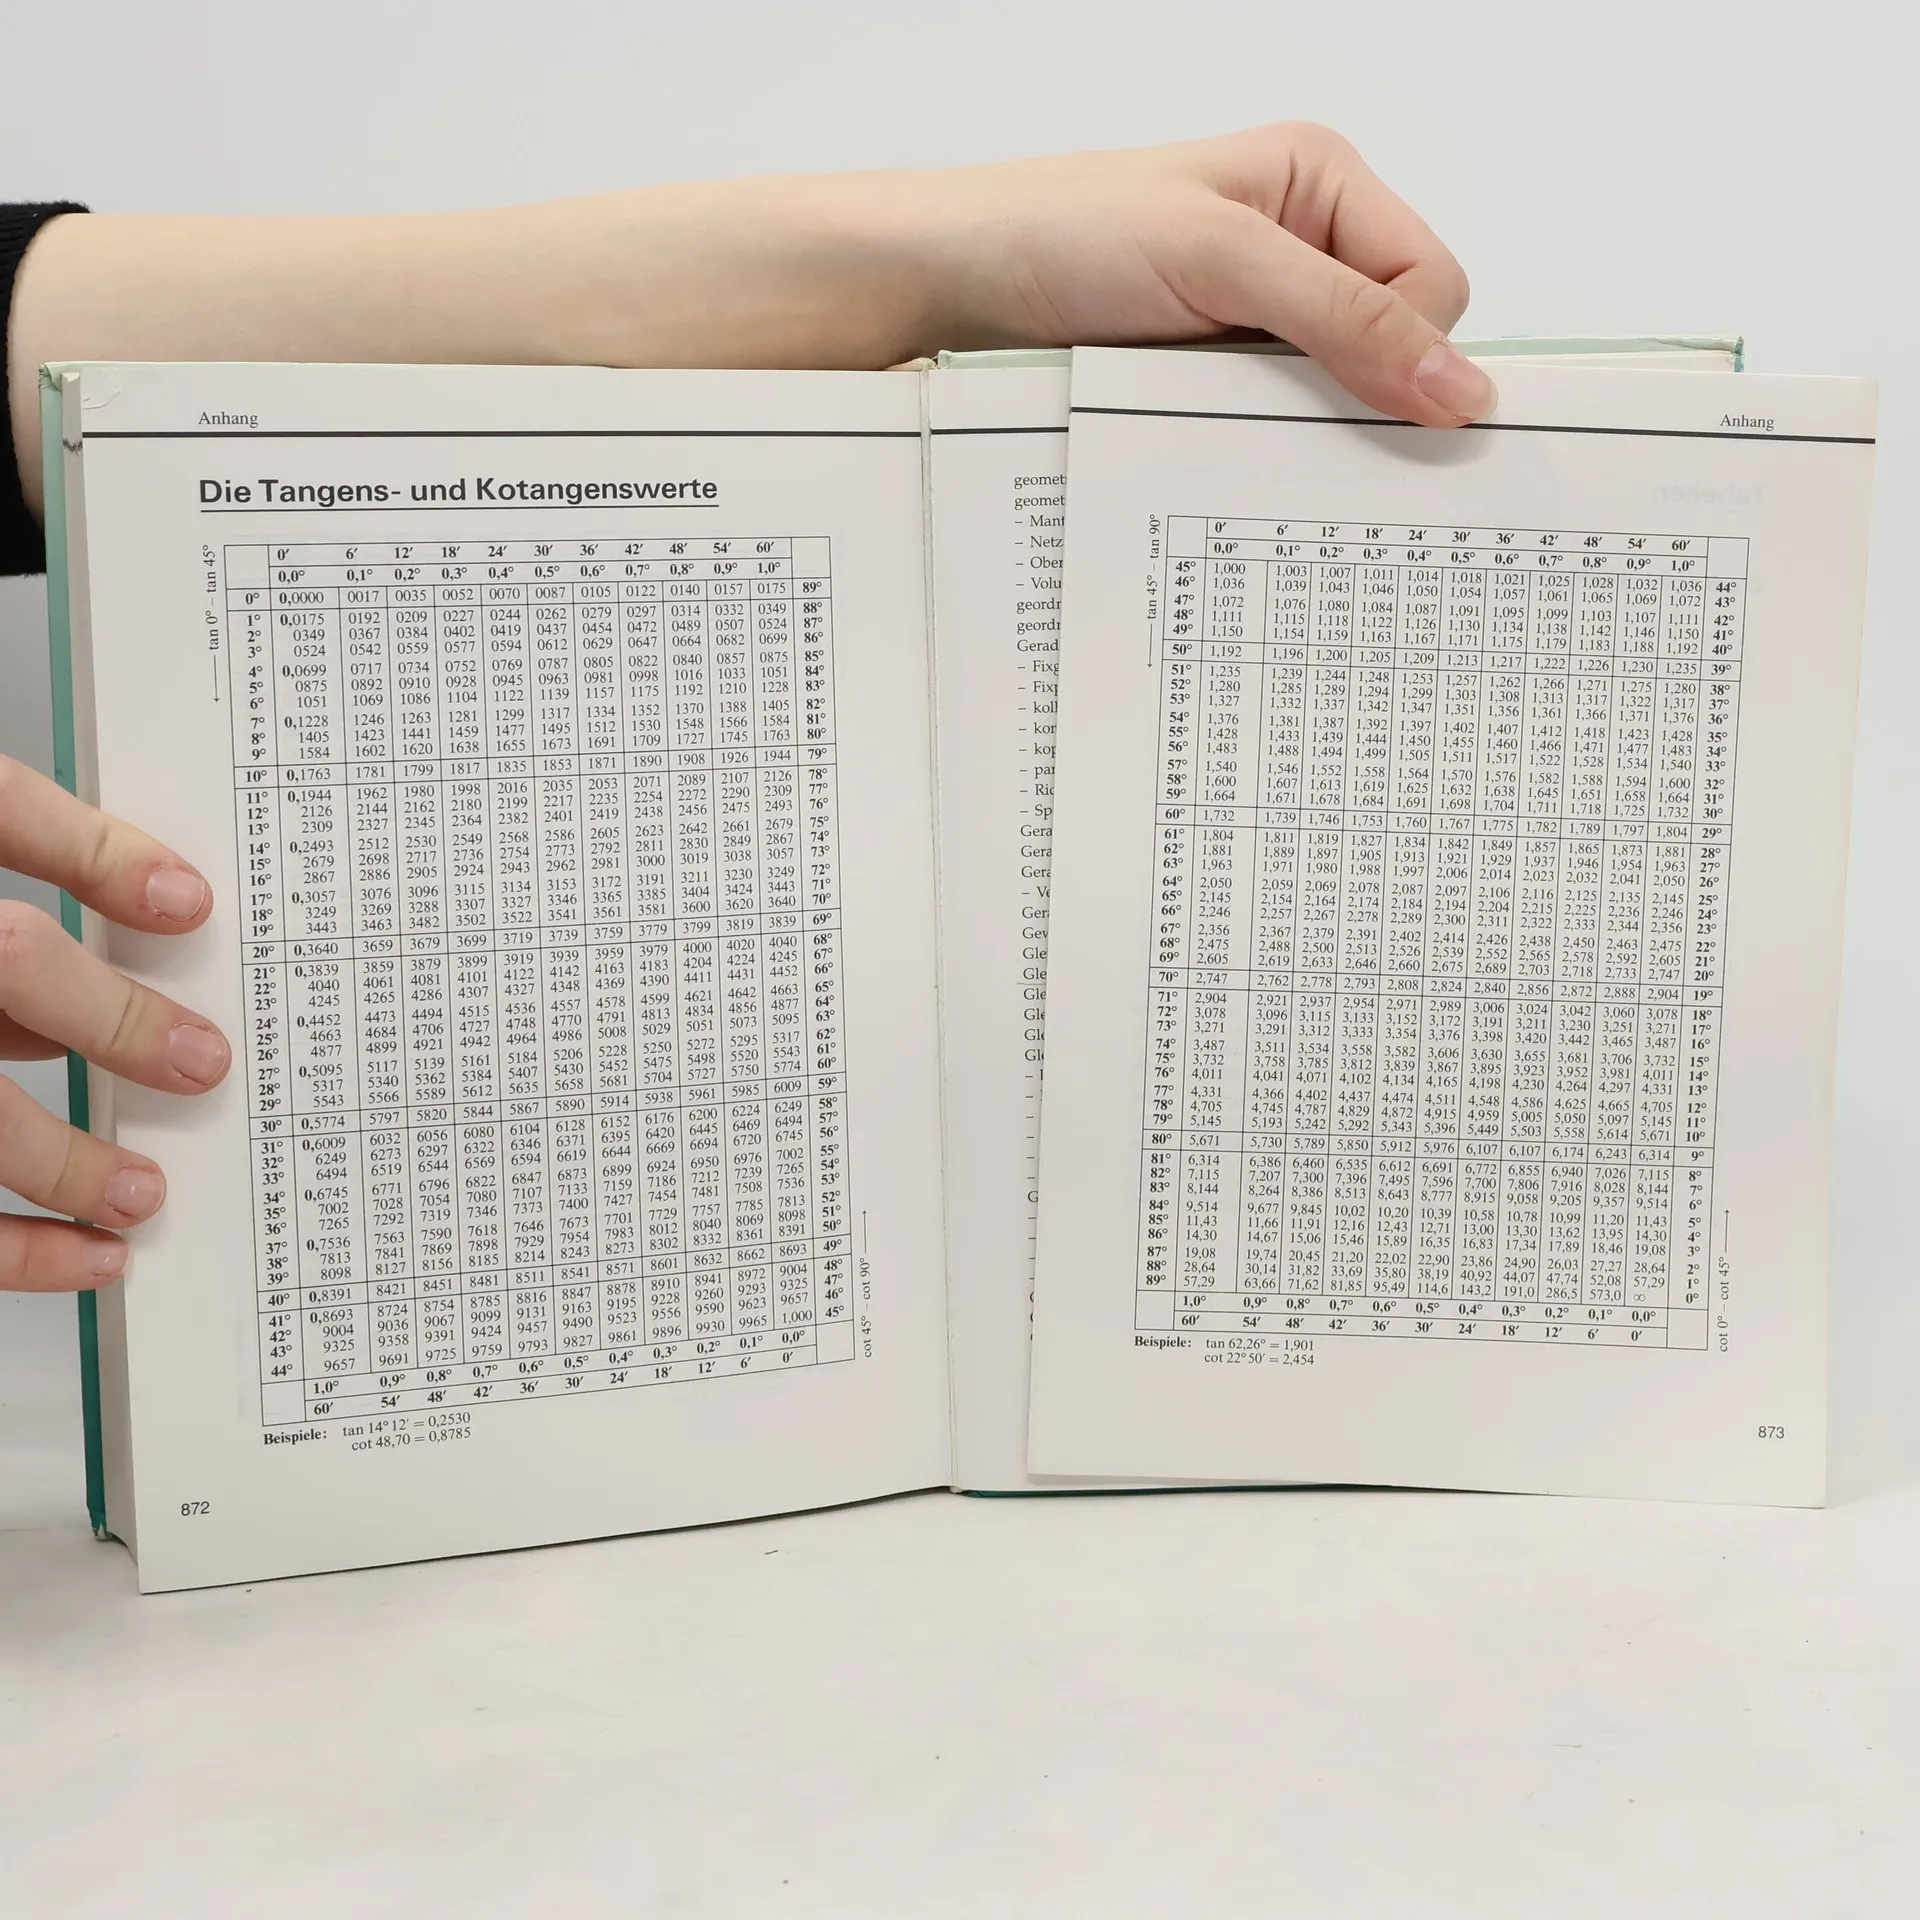 Anhang
Die Tangens- und Kotangenswerte
tan 0° – tan 45°
0′ 6′ 12′ 18′ 24′ 30′ 36′ 42′ 48′ 54′ 60′
0,0° 0,1° 0,2° 0,3° 0,4° 0,5° 0,6° 0,7° 0,8° 0,9° 1,0°
0° 0,0000 0017 0035 0052 0070 0087 0105 0122 0140 0157 0175 89°
1° 0,0175 0192 0209 0227 0244 0262 0279 0297 0314 0332 0349 88°
2° 0349 0367 0384 0402 0419 0437 0454 0472 0489 0507 0524 87°
3° 0524 0542 0559 0577 0594 0612 0629 0647 0664 0682 0699 86°
4° 0,0699 0717 0734 0752 0769 0787 0805 0822 0840 0857 0875 85°
5° 0875 0892 0910 0928 0945 0963 0981 0998 1016 1033 1051 84°
6° 1051 1069 1086 1104 1122 1139 1157 1175 1192 1210 1228 83°
7° 0,1228 1246 1263 1281 1299 1317 1334 1352 1370 1388 1405 82°
8° 1405 1423 1441 1459 1477 1495 1512 1530 1548 1566 1584 81°
9° 1584 1602 1620 1638 1655 1673 1691 1709 1727 1745 1763 80°
10° 0,1763 1781 1799 1817 1835 1853 1871 1890 1908 1926 1944 79°
11° 0,1944 1962 1980 1998 2016 2035 2053 2071 2089 2107 2126 78°
12° 2126 2144 2162 2180 2199 2217 2235 2254 2272 2290 2309 77°
13° 2309 2327 2345 2364 2382 2401 2419 2438 2456 2475 2493 76°
14° 0,2493 2512 2530 2549 2568 2586 2605 2623 2642 2661 2679 75°
15° 2679 2698 2717 2736 2754 2773 2792 2811 2830 2849 2867 74°
16° 2867 2886 2905 2924 2943 2962 2981 3000 3019 3038 3057 73°
17° 0,3057 3076 3096 3115 3134 3153 3172 3191 3211 3230 3249 72°
18° 3249 3269 3288 3307 3327 3346 3365 3385 3404 3424 3443 71°
19° 3443 3463 3482 3502 3522 3541 3561 3581 3600 3620 3640 70°
20° 0,3640 3659 3679 3699 3719 3739 3759 3779 3799 3819 3839 69°
21° 0,3839 3859 3879 3899 3919 3939 3959 3979 4000 4020 4040 68°
22° 4040 4061 4081 4101 4122 4142 4163 4183 4204 4224 4245 67°
23° 4245 4265 4286 4307 4327 4348 4369 4390 4411 4431 4452 66°
24° 0,4452 4473 4494 4515 4536 4557 4578 4599 4621 4642 4663 65°
25° 4663 4684 4706 4727 4748 4770 4791 4813 4834 4856 4877 64°
26° 4877 4899 4921 4942 4964 4986 5008 5029 5051 5073 5095 63°
27° 0,5095 5117 5139 5161 5184 5206 5228 5250 5272 5295 5317 62°
28° 5317 5340 5362 5384 5407 5430 5452 5475 5498 5520 5543 61°
29° 5543 5566 5589 5612 5635 5658 5681 5704 5727 5750 5774 60°
30° 0,5774 5797 5820 5844 5867 5890 5914 5938 5961 5985 6009 59°
31° 0,6009 6032 6056 6080 6104 6128 6152 6176 6200 6224 6249 58°
32° 6249 6273 6297 6322 6346 6371 6395 6420 6445 6469 6494 57°
33° 6494 6519 6544 6569 6594 6619 6644 6669 6694 6720 6745 56°
34° 0,6745 6771 6796 6822 6847 6873 6899 6924 6950 6976 7002 55°
35° 7002 7028 7054 7080 7107 7133 7159 7186 7212 7239 7265 54°
36° 7265 7292 7319 7346 7373 7400 7427 7454 7481 7508 7536 53°
37° 0,7536 7563 7590 7618 7646 7673 7701 7729 7757 7785 7813 52°
38° 7813 7841 7869 7898 7929 7954 7983 8012 8040 8069 8098 51°
39° 8098 8127 8156 8185 8214 8243 8273 8302 8332 8361 8391 50°
40° 0,8391 8421 8451 8481 8511 8541 8571 8601 8632 8662 8693 49°
41° 0,8693 8724 8754 8785 8816 8847 8878 8910 8941 8972 9004 48°
42° 9004 9036 9067 9099 9131 9163 9195 9228 9260 9293 9325 47°
43° 9325 9358 9391 9424 9457 9490 9523 9556 9590 9623 9657 46°
44° 9657 9691 9725 9759 9793 9827 9861 9896 9930 9965 1,000 45°
1,0° 0,9° 0,8° 0,7° 0,6° 0,5° 0,4° 0,3° 0,2° 0,1° 0,0°
60′ 54′ 48′ 42′ 36′ 30′ 24′ 18′ 12′ 6′ 0′
cot 45° – cot 90°
Beispiele: tan 14° 12′ = 0,2530
cot 48,70 = 0,8785
872
geomet
geomet
– Mant
– Netz
– Ober
– Volu
geordr
geordr
Gerad
– Fixg
– Fixp
– koll
– kor
– kop
– par
– Ric
– Sp
Gera
Gera
Gera
– Ve
Gera
Gew
Gle
Gle
Gle
Gle
Gle
Gle
Anhang
tan 45° – tan 90°
0′ 6′ 12′ 18′ 24′ 30′ 36′ 42′ 48′ 54′ 60′
0,0° 0,1° 0,2° 0,3° 0,4° 0,5° 0,6° 0,7° 0,8° 0,9° 1,0°
45° 1,000 1,003 1,007 1,011 1,014 1,018 1,021 1,025 1,028 1,032 1,036 44°
46° 1,036 1,039 1,043 1,046 1,050 1,054 1,057 1,061 1,065 1,069 1,072 43°
47° 1,072 1,076 1,080 1,084 1,087 1,091 1,095 1,099 1,103 1,107 1,111 42°
48° 1,111 1,115 1,118 1,122 1,126 1,130 1,134 1,138 1,142 1,146 1,150 41°
49° 1,150 1,154 1,159 1,163 1,167 1,171 1,175 1,179 1,183 1,188 1,192 40°
50° 1,192 1,196 1,200 1,205 1,209 1,213 1,217 1,222 1,226 1,230 1,235 39°
51° 1,235 1,239 1,244 1,248 1,253 1,257 1,262 1,266 1,271 1,275 1,280 38°
52° 1,280 1,285 1,289 1,294 1,299 1,303 1,308 1,313 1,317 1,322 1,317 37°
53° 1,327 1,332 1,337 1,342 1,347 1,351 1,356 1,361 1,366 1,371 1,376 36°
54° 1,376 1,381 1,387 1,392 1,397 1,402 1,407 1,412 1,418 1,423 1,428 35°
55° 1,428 1,433 1,439 1,444 1,450 1,455 1,460 1,466 1,471 1,477 1,483 34°
56° 1,483 1,488 1,494 1,499 1,505 1,511 1,517 1,522 1,528 1,534 1,540 33°
57° 1,540 1,546 1,552 1,558 1,564 1,570 1,576 1,582 1,588 1,594 1,600 32°
58° 1,600 1,607 1,613 1,619 1,625 1,632 1,638 1,645 1,651 1,658 1,664 31°
59° 1,664 1,671 1,678 1,684 1,691 1,698 1,704 1,711 1,718 1,725 1,732 30°
60° 1,732 1,739 1,746 1,753 1,760 1,767 1,775 1,782 1,789 1,797 1,804 29°
61° 1,804 1,811 1,819 1,827 1,834 1,842 1,849 1,857 1,865 1,873 1,881 28°
62° 1,881 1,889 1,897 1,905 1,913 1,921 1,929 1,937 1,946 1,954 1,963 27°
63° 1,963 1,971 1,980 1,988 1,997 2,006 2,014 2,023 2,032 2,041 2,050 26°
64° 2,050 2,059 2,069 2,078 2,087 2,097 2,106 2,116 2,125 2,135 2,145 25°
65° 2,145 2,154 2,164 2,174 2,184 2,194 2,204 2,215 2,225 2,236 2,246 24°
66° 2,246 2,257 2,267 2,278 2,289 2,300 2,311 2,322 2,333 2,344 2,356 23°
67° 2,356 2,367 2,379 2,391 2,402 2,414 2,426 2,438 2,450 2,463 2,475 22°
68° 2,475 2,488 2,500 2,513 2,526 2,539 2,552 2,565 2,578 2,592 2,605 21°
69° 2,605 2,619 2,633 2,646 2,660 2,675 2,689 2,703 2,718 2,733 2,747 20°
70° 2,747 2,762 2,778 2,793 2,808 2,824 2,840 2,856 2,872 2,888 2,904 19°
71° 2,904 2,921 2,937 2,954 2,971 2,989 3,006 3,024 3,042 3,060 3,078 18°
72° 3,078 3,096 3,115 3,133 3,152 3,172 3,191 3,211 3,230 3,251 3,271 17°
73° 3,271 3,291 3,312 3,333 3,354 3,376 3,398 3,420 3,442 3,465 3,487 16°
74° 3,487 3,511 3,534 3,558 3,582 3,606 3,630 3,655 3,681 3,706 3,732 15°
75° 3,732 3,758 3,785 3,812 3,839 3,867 3,895 3,923 3,952 3,981 4,011 14°
76° 4,011 4,041 4,071 4,102 4,134 4,165 4,198 4,230 4,264 4,297 4,331 13°
77° 4,331 4,366 4,402 4,437 4,474 4,511 4,548 4,586 4,625 4,665 4,705 12°
78° 4,705 4,745 4,787 4,829 4,872 4,915 4,959 5,005 5,050 5,097 5,145 11°
79° 5,145 5,193 5,242 5,292 5,343 5,396 5,449 5,503 5,558 5,614 5,671 10°
80° 5,671 5,730 5,789 5,850 5,912 5,976 6,107 6,107 6,174 6,243 6,314 9°
81° 6,314 6,386 6,460 6,535 6,612 6,691 6,772 6,855 6,940 7,026 7,115 8°
82° 7,115 7,207 7,300 7,396 7,495 7,596 7,700 7,806 7,916 8,028 8,144 7°
83° 8,144 8,264 8,386 8,513 8,643 8,777 8,915 9,058 9,205 9,357 9,514 6°
84° 9,514 9,677 9,845 10,02 10,20 10,39 10,58 10,78 10,99 11,20 11,43 5°
85° 11,43 11,66 11,91 12,16 12,43 12,71 13,00 13,30 13,62 13,95 14,30 4°
86° 14,30 14,67 15,06 15,46 15,89 16,35 16,83 17,34 17,89 18,46 19,08 3°
87° 19,08 19,74 20,45 21,20 22,02 22,90 23,86 24,90 26,03 27,27 28,64 2°
88° 28,64 30,14 31,82 33,69 35,80 38,19 40,92 44,07 47,74 52,08 57,29 1°
89° 57,29 63,66 71,62 81,85 95,49 114,6 143,2 191,0 286,5 573,0 ∞ 0°
1,0° 0,9° 0,8° 0,7° 0,6° 0,5° 0,4° 0,3° 0,2° 0,1° 0,0°
60′ 54′ 48′ 42′ 36′ 30′ 24′ 18′ 12′ 6′ 0′
cot 0° – cot 45°
Beispiele: tan 62,26° = 1,901
cot 22° 50′ = 2,454
873